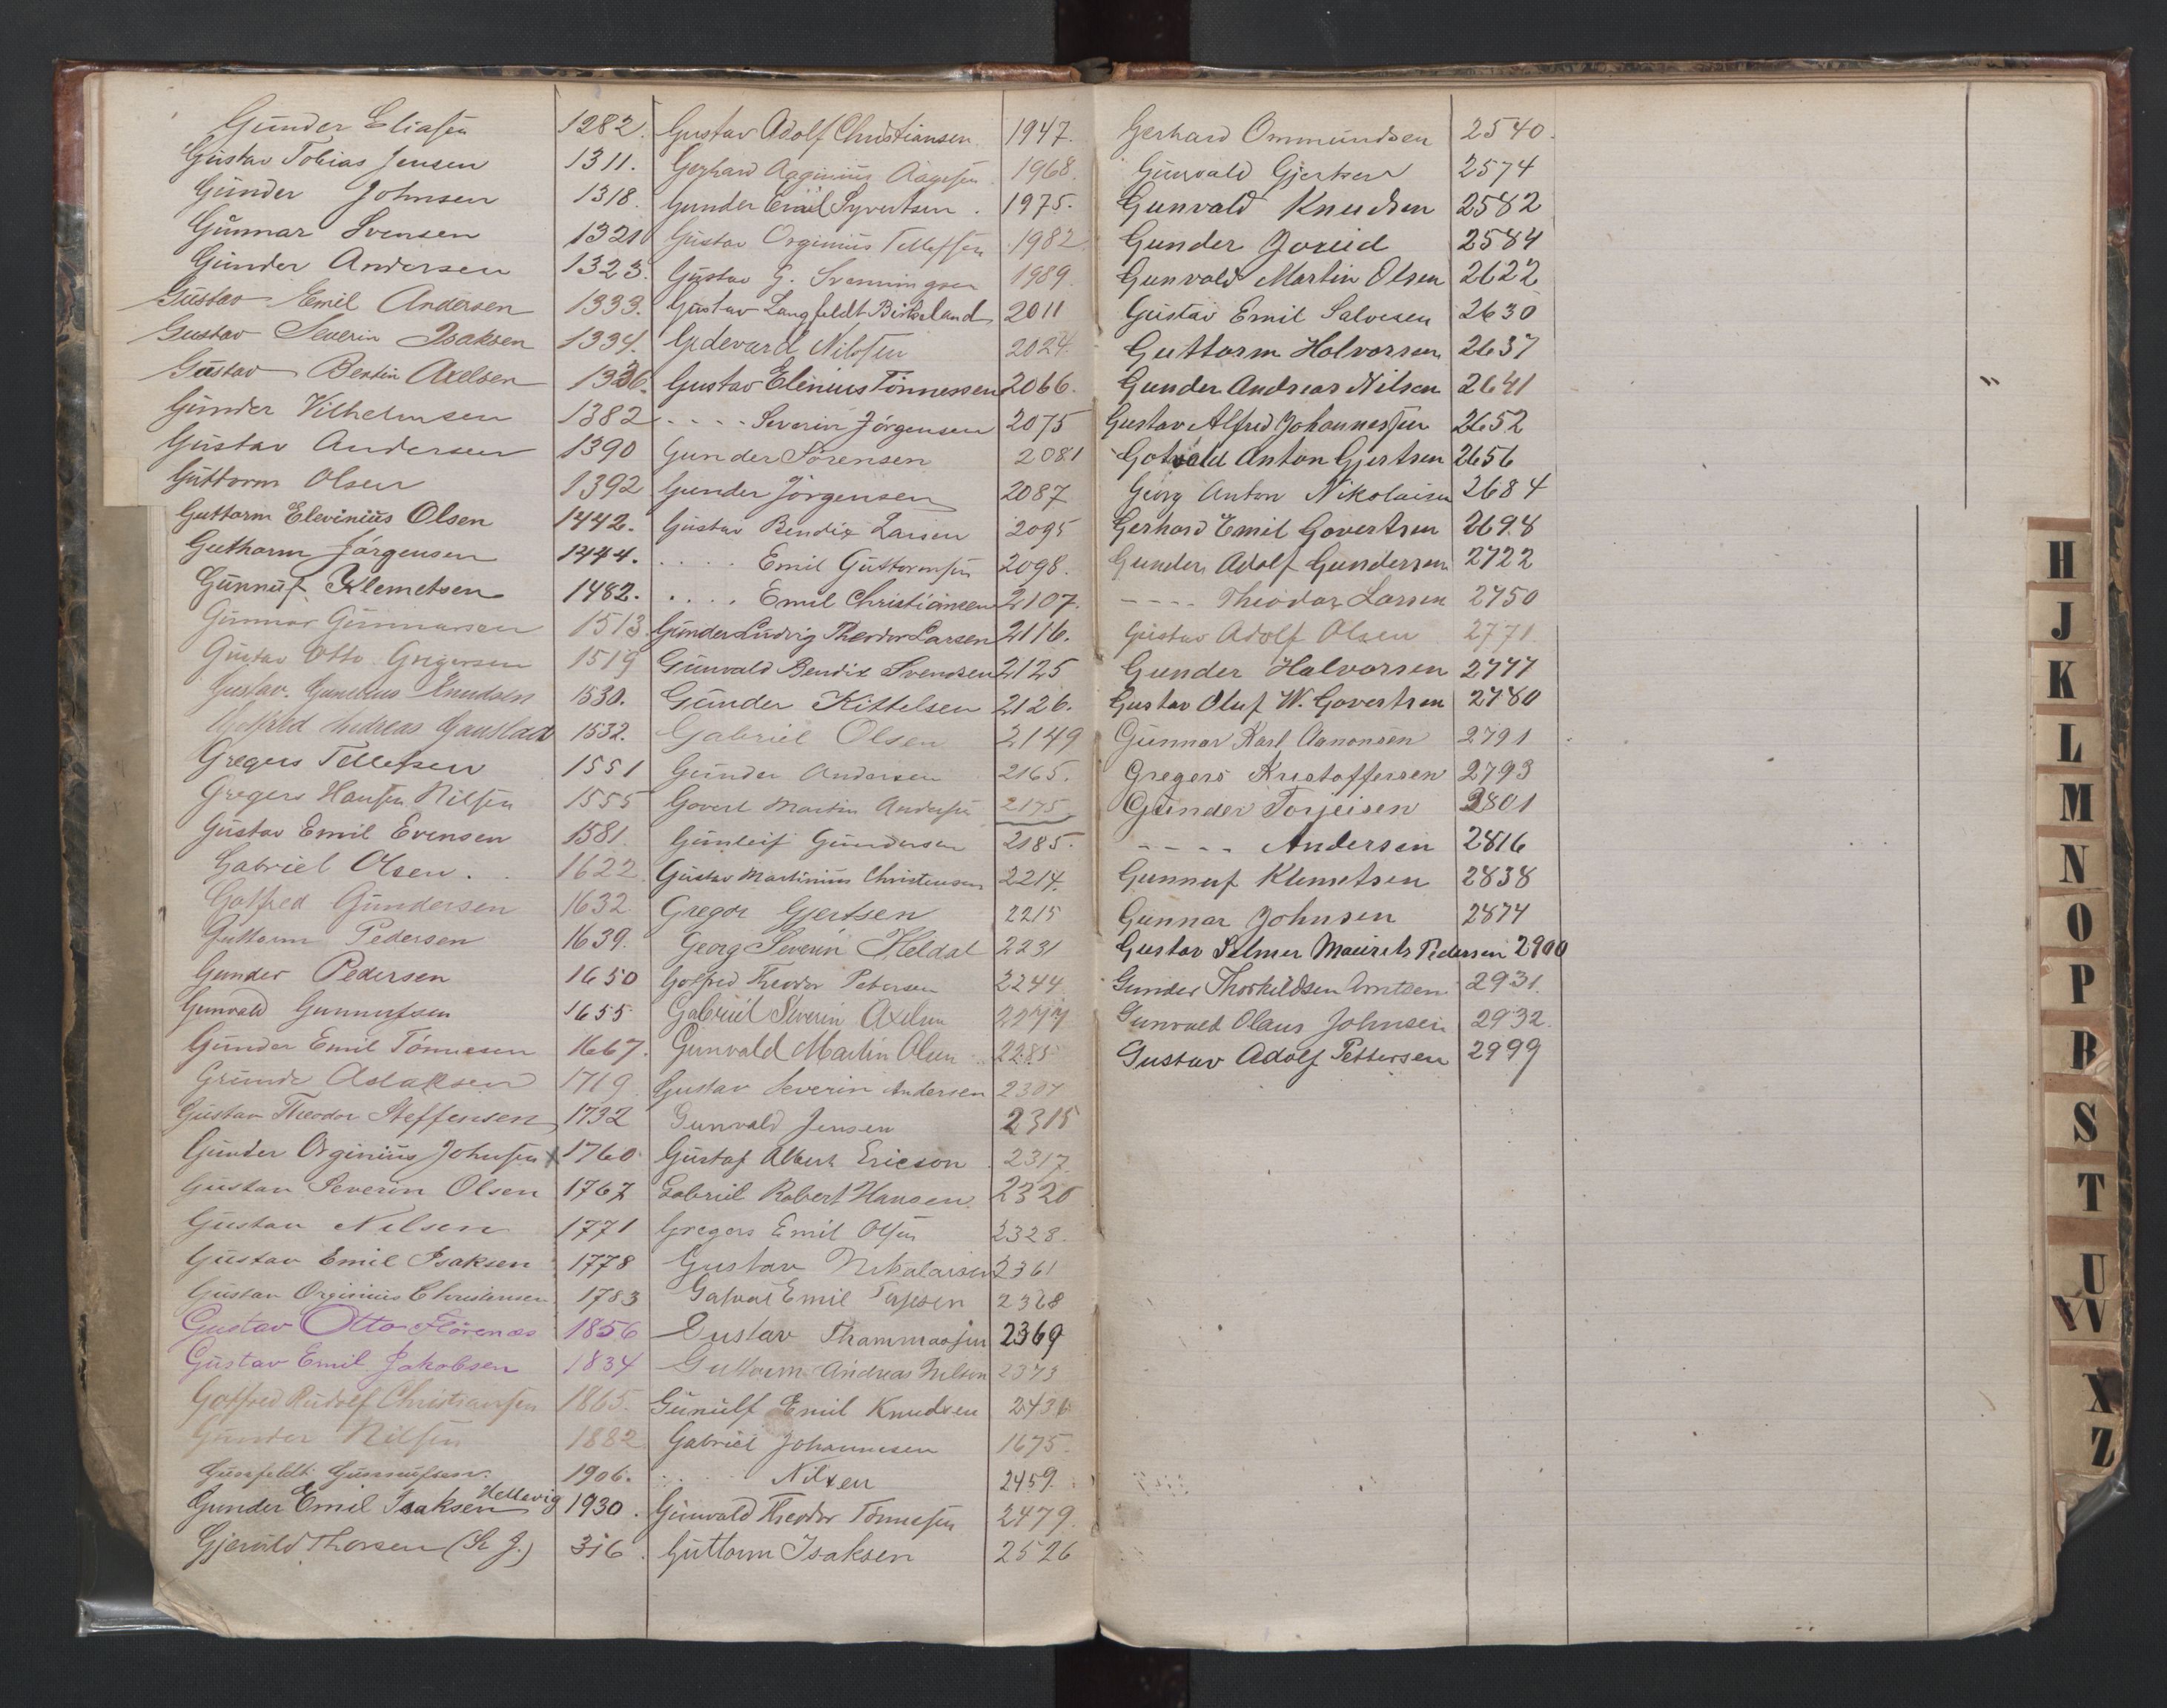 Gunder Eliassen 1282.
Gustav Tobias Jensen 1311.
Gunder Johnsen 1318.
Gunnar Svensen 1321
Gunder Andersen 1323.
Gustav Emil Andersen 1333.
Gustav Severin Isaksen 1334.
Gustav Bertin Axelsen 1336.
Gunder Vilhelmsen 1382
Gustav Andersen 1390
Guttorm Olsen 1392
Guttorm Elevinius Olsen 1442.
Guthorm Jörgensen 1444.
Gunnuf Klemetsen 1482.
Gunnar Gunnarsen 1513.
Gustav Otto Gregersen 1519
Gustav. Gunelius Knudsen 1530.
Gotfred Andreas Gauslaa 1532.
Gregers Tellefsen 1551
Gregers Hansen Nilsen 1555
Gustav Emil Evensen 1581.
Gabriel Olsen. 1622
Gotfred Gundersen 1632
Guttorm Pedersen 1639.
Gunder Pedersen 1650
Gunvald Gunnufsen 1655
Gunder Emil Tönnesen 1667.
Grunde Aslaksen 1719
Gustav Theodor Steffensen 1732
Gunder Orginius Johnsen x 1760
Gustav Severin Olsen 1767
Gustav Nilsen 1771
Gustav Emil Isaksen 1778
Gustav Orginius Christensen 1783
Gustav Otto Florenæs 1856
Gustav Emil Jakobsen 1834
Gotfred Rudolf Christiansen 1865.
Gunder Nilsen 1882
Gunfeldt Gunnufsen. 1906.
Gunder Emil Isaksen Hellevig 1930.
Gjeruld Thorsen (Sk J.) 316.
Gustav Adolf Christiansen 1947.
Gerhard Aaginius Aagesen 1968.
Gunder Emil Syvertsen. 1975.
Gustav Orginius Tellefsen 1982
Gustav G. Svenningsen 1989
Gustav Langfeldt Birkeland 2011
Gedevard Nilsen 2024.
Gustav Elenius Tönnessen 2066.
- - - - Severin Jörgensen 2075
Gunder Sörensen 2081
Gunder Jörgensen 2087
Gustav Bendix Larsen 2095
. . . . . Emil Guttormsen 2098.
. . . . Emil Christiansen 2107.
Gunder Ludvig Theodor Larsen 2116.
Gunvald Bendix Svendsen 2125
Gunder Kittelsen 2126.
Gabriel Olsen 2149
Gunder Andersen 2165.
Govert Martin Andersen 2175
Gunleif Gundersen 2185.
Gustav Martinius Christensen 2214.
Gregor Gjertsen 2215
Georg Severin Heldal 2231
Gotfred Theodor Petersen 2244
Gabriel Severin Axelsen 2277
Gunvald Martin Olsen 2285
Gustav Severin Andersen 2307
Gunvald Jensen 2315
Gustaf Albert Ericson 2317.
Gabriel Robert Hansen 2320
Gregers Emil Olsen 2328.
Gustav Nikolaisen 2361
Emil Terjesen 2368
Gustav Thommassen 2369
Guttorm Andreas Nilsen 2373
Gunulf Emil Knudsen 2436
Gabriel Johannesen 1675.
. . . . Nilsen 2459.
Gunvald Theodor Tönnesen 2479.
Guttorm Isaksen 2526
Gerhard Ommundsen 2540.
Gunvald Gjerkes 2574
Gunvald Knudsen 2582
Gunder Joreid 2584
Gunvald Martin Olsen 2622
Gustav Emil Salvesen 2630
Guttorm Halvorsen 2637
Gunder Andreas Nilsen 2641
Gustav Alfred Johannessen 2652
Gotvald Anton Gjertsen 2656
Georg Anton Nikolaisen 2684
Gerhard Emil Govertsen 2698
Gunder Adolf Gundersen 2722
- - - - Theodor Larsen 2750
Gustav Adolf Olsen 2771.
Gunder Halvorsen 2777
Gustav Oluf W. Govertsen 2780
Gunnar Karl Aanonsen 2791
Gregers Kristoffersen 2793
Gunder Torjeisen 2801
- - - - Andersen 2816
Gunnuf Klemetsen 2838
Gunnar Johnsen 2874
Gustav Selmer Mauritz Pedersen 2900
Gunder Thorkildsen Arntsen 2931.
Gunvald Olaus Johnsen 2932.
Gustav Adolf Pettersen 2999
"
H
J
K
L
M
N
O
P
R
S
T
U
VW
X
Z